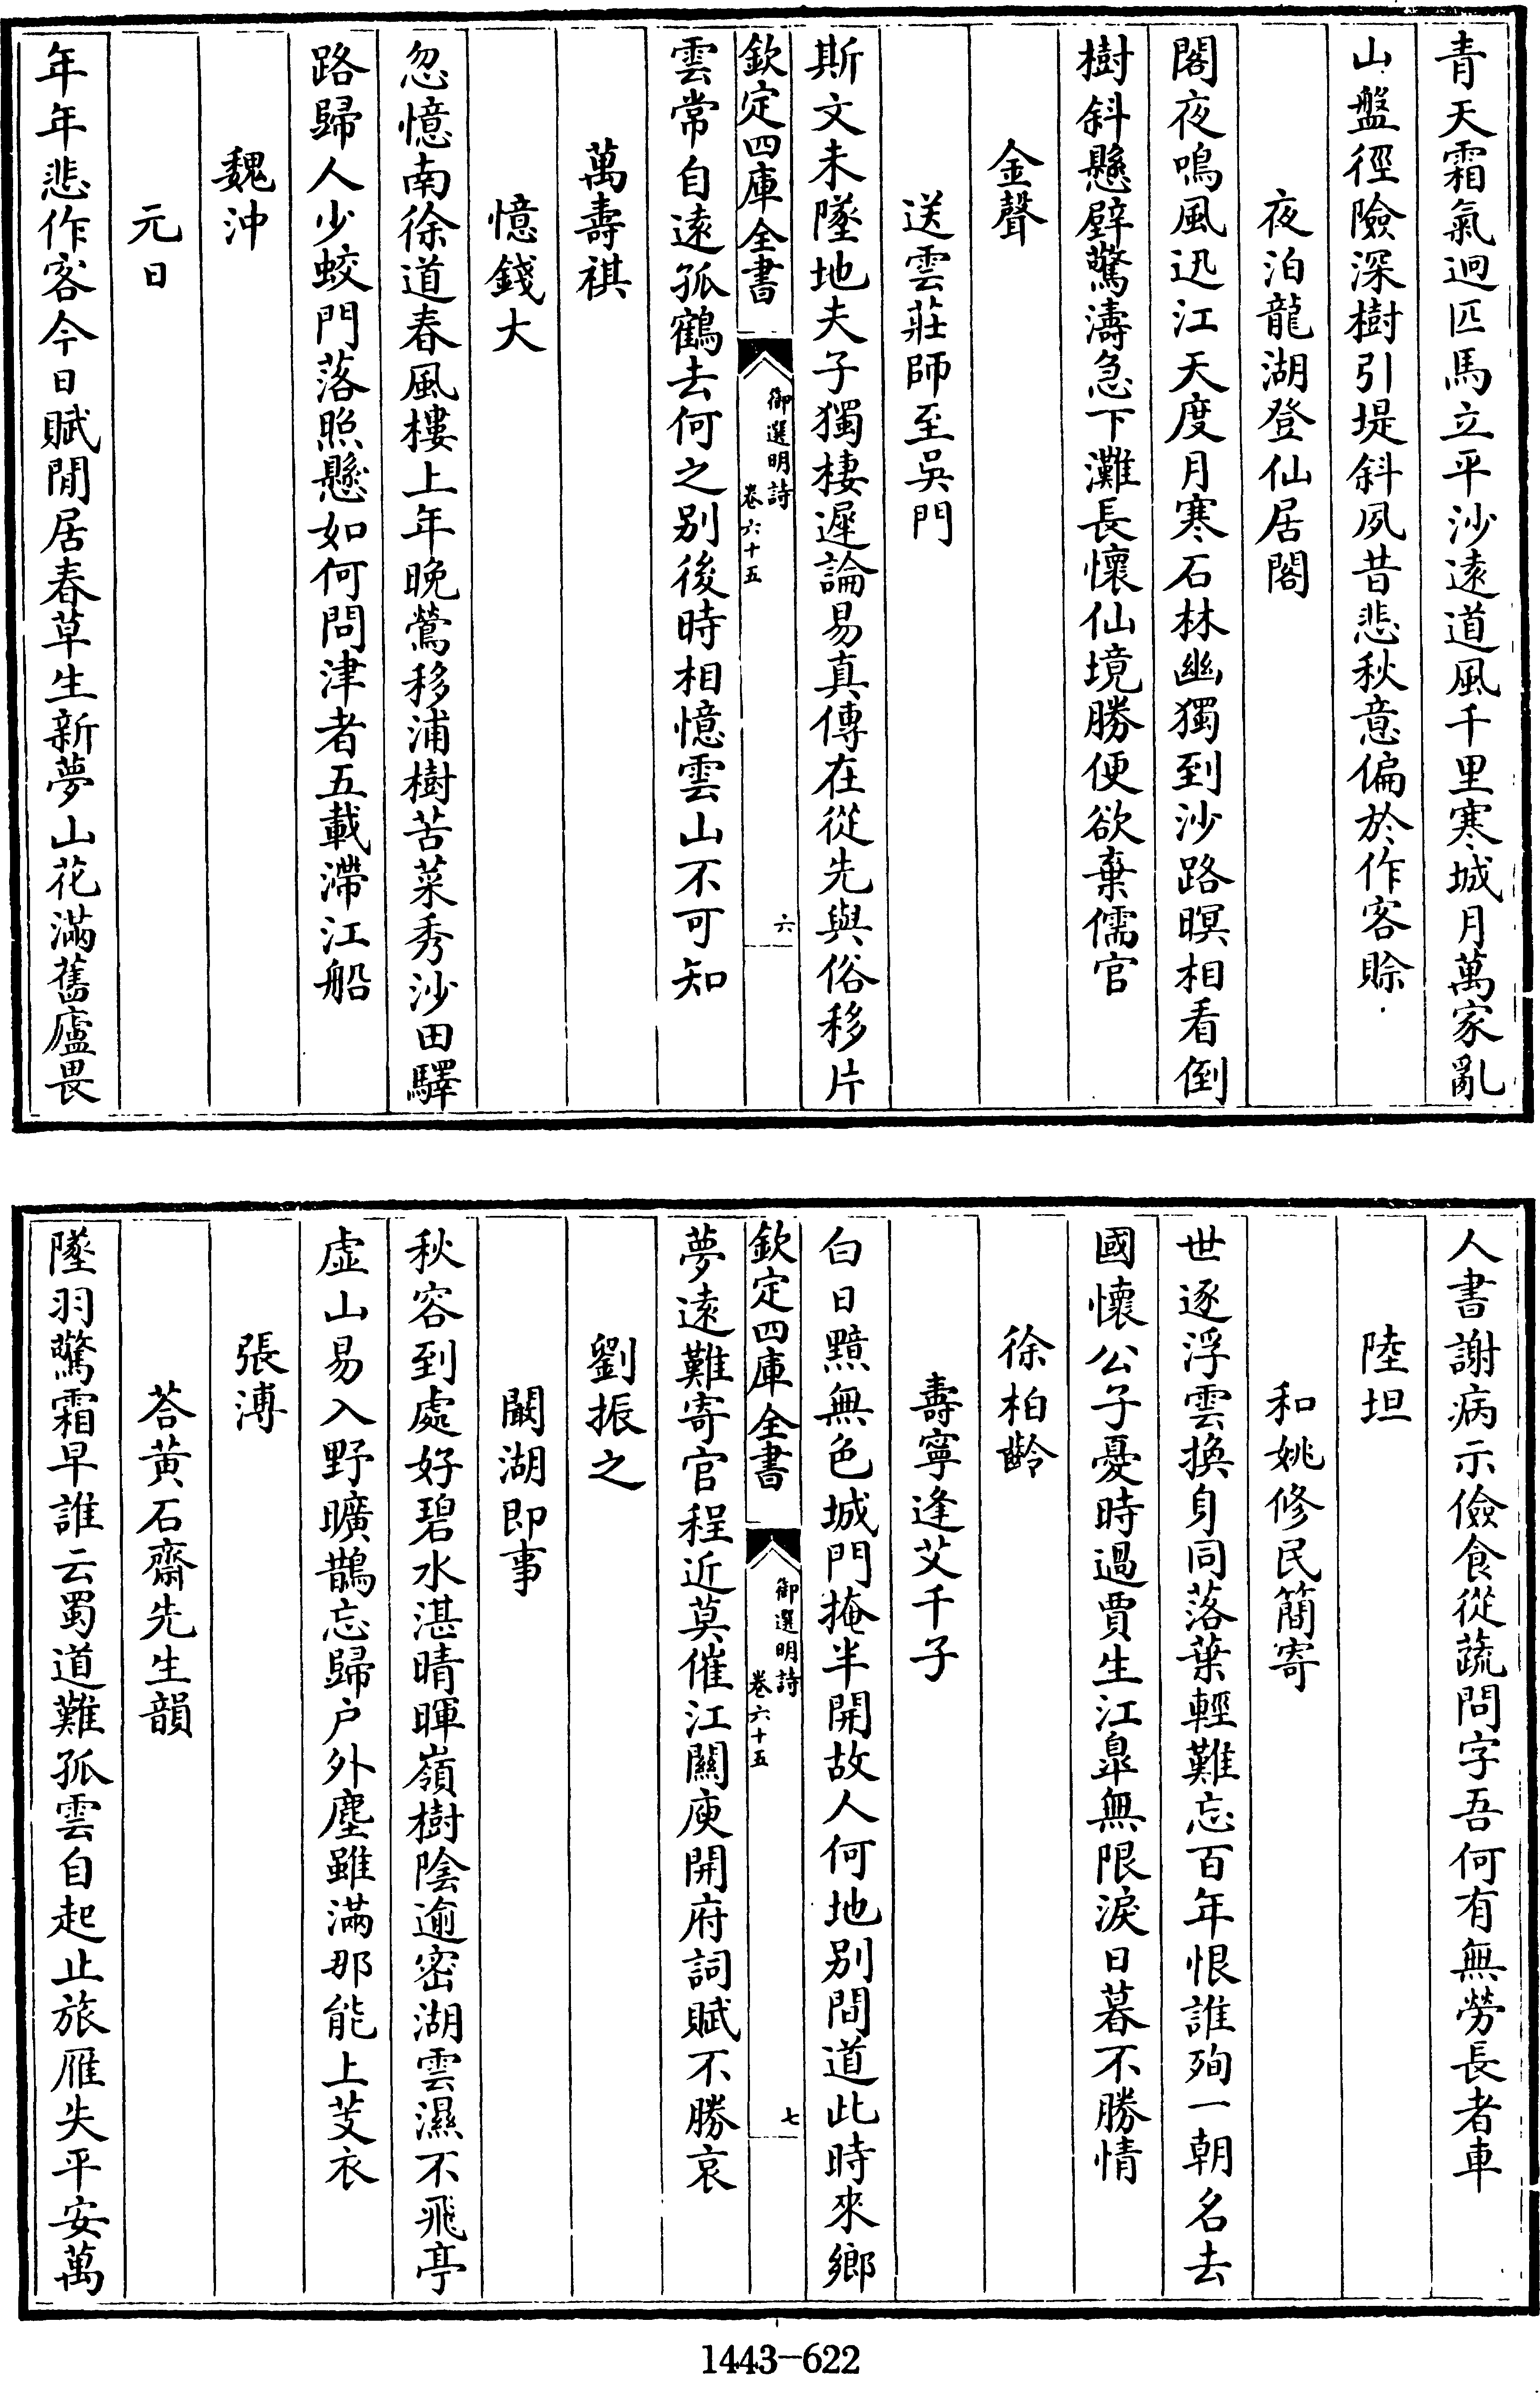 青天霜氣迥匹馬立平沙遠道風千里寒城月萬家亂
山盤徑險深樹引堤斜夙昔悲秋意偏於作客賒
夜泊龍湖登仙居閣
閣夜鳴風迅江天度月寒石林幽獨到沙路暝相看倒
樹斜懸壁驚濤急下灘長懷仙境勝便欲棄儒官
金聲
送雲莊師至吳門
斯文未墜地夫子獨棲遲論易真傳在從先與俗移片
欽定四庫全書
御選明詩
卷六十五
六
雲常自遠孤鶴去何之別後時相憶雲山不可知
萬壽祺
憶錢大
忽憶南徐道春風樓上年晚鶯移浦樹苦菜秀沙田驛
路歸人少蛟門落照懸如何問津者五載滯江船
魏沖
元日
年年悲作客今日賦閒居春草生新夢山花滿舊廬畏
人書謝病示儉食從蔬問字吾何有無勞長者車
陸坦
和姚修民簡寄
世逐浮雲換身同落葉輕難忘百年恨誰殉一朝名去
國懷公子憂時過賈生江臯無限淚日暮不勝情
徐柏齡
壽寧逢艾千子
白日黯無色城門掩半開故人何地別間道此時來鄉
欽定四庫全書
御選明詩
卷六十五
七
夢遠難寄官程近莫催江關庾開府詞賦不勝哀
劉振之
闞湖即事
秋容到處好碧水湛晴暉嶺樹陰逾密湖雲濕不飛亭
虛山易入野曠鵲忘歸户外塵雖滿那能上芰衣
張溥
荅黃石齋先生韻
墜羽驚霜早誰云蜀道難孤雲自起止旅雁失平安萬
1443-622